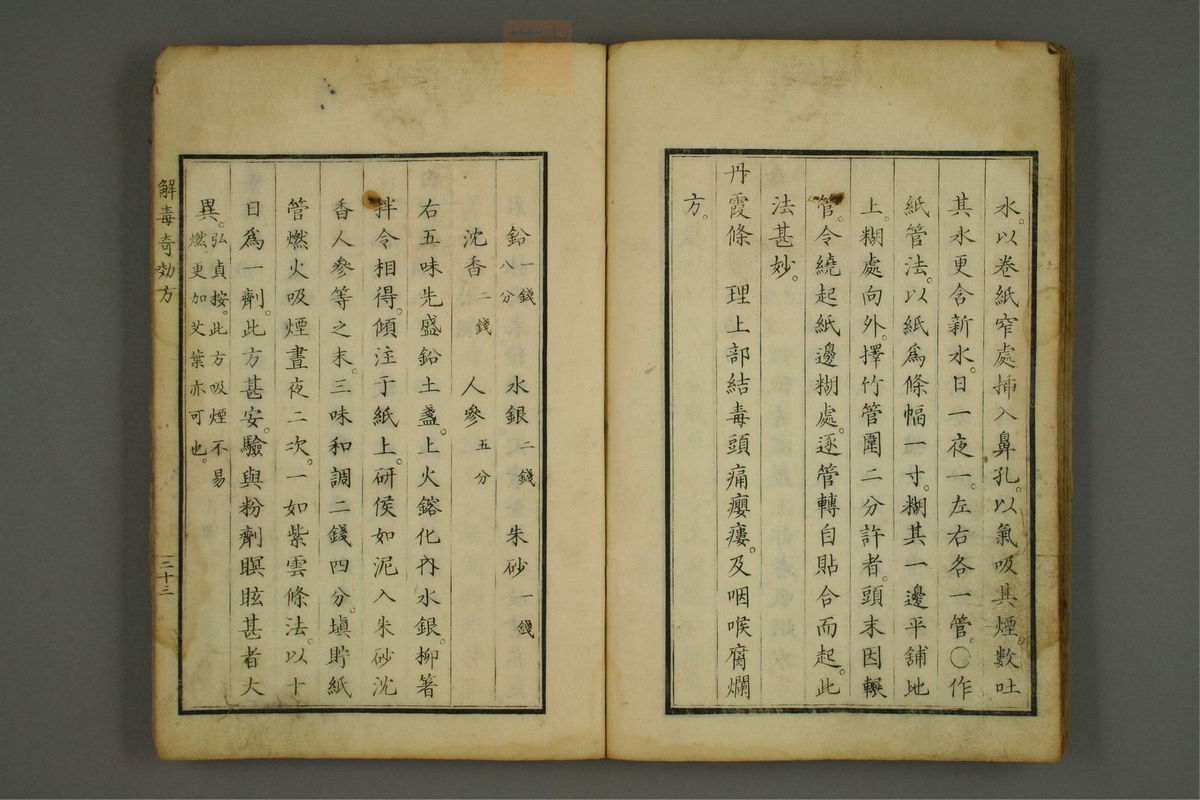 水。以卷紙窄處揷入鼻孔。以氣吸其煙。數吐
其水更含新水。日一夜一。左右各一管。○作
紙管法。以紙爲條幅一寸。糊其一邊平舖地
上。糊處向外。擇竹管圍二分許者。頭末因輾
管。令繞起紙邊糊處。逐管轉自貼合而起。此
法甚妙。
丹霞條　理上部結毒頭痛癭瘻。及咽喉腐爛
方。
鉛一錢八分　水銀二錢　朱砂一錢
沈香二錢　人參五分
右五味先盛鉛土盞。上火鎔化內水銀。柳箸
拌令相得。傾注于紙上。研侯如泥入朱砂沈
香人參等之末。三味和調二錢四分。塡貯紙
管燃火吸煙晝夜二次。一如紫雲條法。以十
日爲一劑。此方甚安。驗與粉劑瞑眩甚者大
異。弘貞按。此方吸煙不易
燃更加艾葉亦可也。
解毒奇効方
二十三